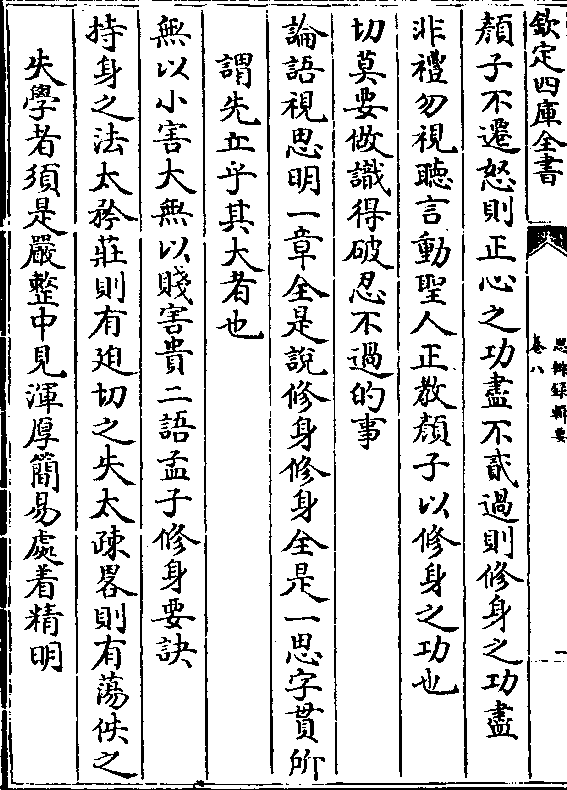 欽定四庫全書
思辨錄輯要
卷八
一
顔子不遷怒則正心之功盡不貳過則修身之功盡
非禮勿視聽言動聖人正教顔子以修身之功也
切莫要做識得破忍不過的事
論語視思明一章全是說修身修身全是一思字貫所
謂先立乎其大者也
無以小害大無以賤害貴二語孟子修身要訣
持身之法太矜莊則有廹切之失太疎畧則有蕩佚之
失學者須是嚴整中見渾厚簡易處着精明